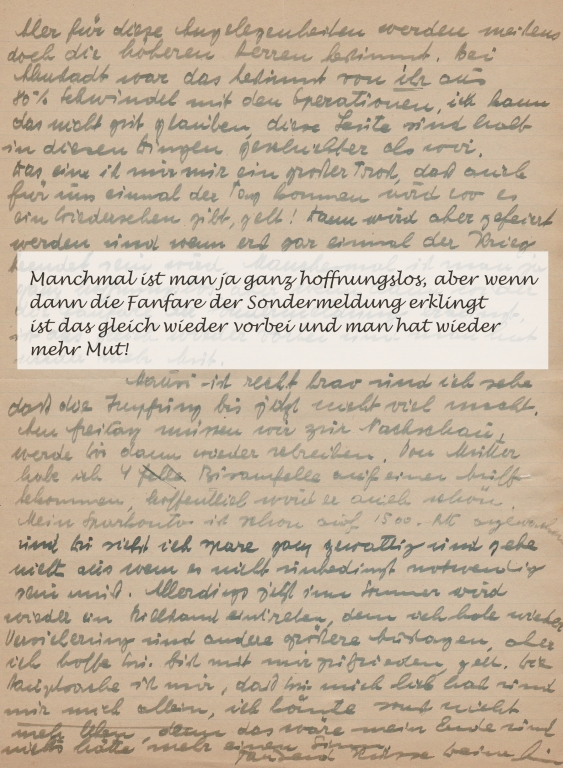 Aber für diese Angelegenheiten werden meistens
doch die höheren Herren bestimmt. Bei
war das bestimmt von ihr aus
80% Schwindel mit den Operationen, ich kann
das nicht gut glauben, diese Leute sind halt
in diesen Dingen gescheidter als wir.
Das eine ist mir ein großer Trost, daß auch
für uns einmal der Tag kommen wird wo es
ein Wiedersehen gibt, gelt! Dann wird aber gefeiert
werden und wenn erst gar einmal der Krieg
beendet sein wird.
Manchmal ist man ja ganz hoffnungslos, aber wenn
dann die Fanfare der Sondermeldung erklingt
ist das gleich wieder vorbei und man hat wieder
mehr Mut!
ist recht brav und ich sehe
daß die Impfung bis jetzt nicht viel macht.
Am Freitag müssen wir zur Nachschau,
werde bis dann wieder schreiben. Von Mutter
habe ich 4 Felle Bisamfelle auf einen
bekommen, hoffentlich wird er auch schön.
Mein Sparkonto ist schon auf 1500.- angewachsen
und Du siehst ich spare ganz gewaltig und gebe
nicht aus wenn es nicht unbedingt notwendig
sein muß. Allerdings jetzt im Sommer wird
wieder ein Stillstand eintreten, denn ich habe wieder
Versicherung und andere größere Auslagen, aber
ich hoffe Du bist mit mir zufrieden, gelt. Die
Hauptsache ist mir, daß Du mich lieb hast und
mir mich allein, ich könnte sonst nicht
mehr leben, denn das wäre mein Ende und
nichts hätte mehr einen Sinn.
Tausend Küsse Deine